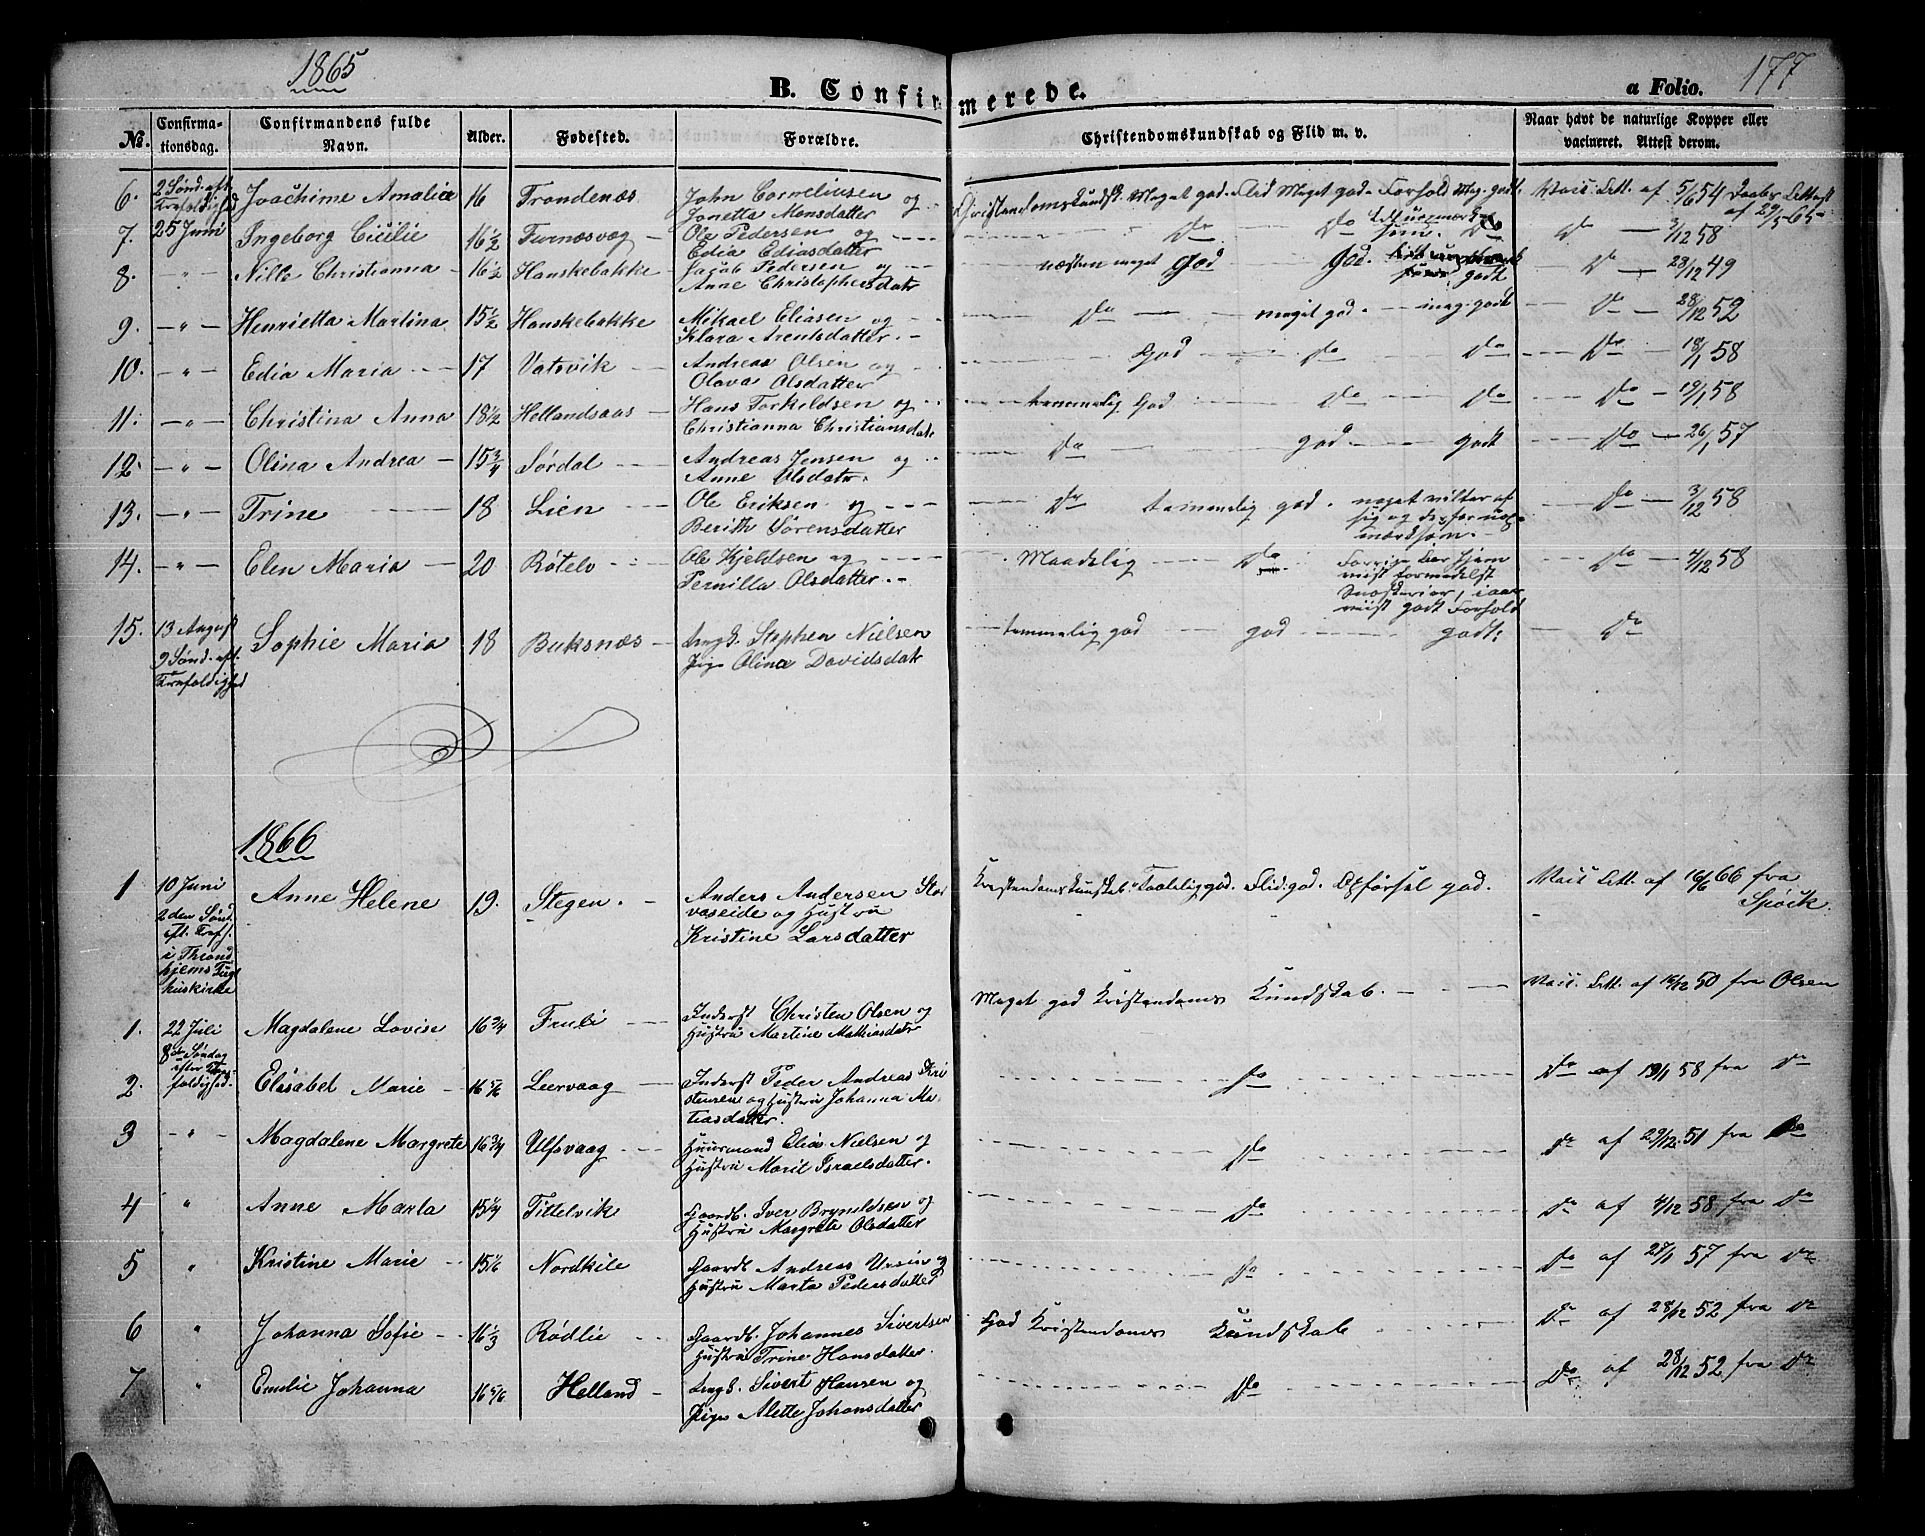 1865
177
B. Confirmerede.
a Folio.
No. Confirmationsdag. Confirmandens fulde Navn. Alder. Fødested. Forældre. Christendomskundskab og Flid m. v. Naar havt de naturlige Kopper eller vacineret. Attest derom.
6. 2 Sønd. eft. Trefoldighed Joachime Amalia 16 Trondenæs John Corneliusen og Jonetta Monsdatter Christendomskundsk. Meget god. Flid Meget god. Forhold Meg. godt. Vacc. Att. af 5/6 54 Daaber Attest af 29/5 65
7. 25 Juni Ingeborg Cicilie 16 1/2 Furnæsvåg Ole Pedersen og Edia Ediasdatter Do Do Do Do 3/12 58
8. " Nille Christianna 16 1/2 Hanskebakke Jacob Pedersen og Anne Christophersdatr næsten meget God God. godt Do 28/12 49
9. " Henrietta Martina 15 1/2 Hanskebakke Mikael Eliasen og Klara Arentsdatter. Do meget god. meg. godt Do 28/12 52
10. " Edia Maria 17 Vatsvik Andreas Olsen og Olava Olsdatter God Do Do Do 18/1 58
11. " Christina Anna 18 1/2 Hellandsaas Hans Torkildsen og Christianna Christiansdatr temmelig God Do Do Do 19/1 58
12. " Olina Andrea 15 3/4 Sørdal Andreas Jensen og Anne Olsdatr. Do god. godt Do 26/1 57
13. " Trine 18 Lien Ole Eriksen og Berith Sørensdatter Do temmelig god. Do 3/12 58
14. " Elen Maria 20 Røtelv Ole Kjeldsen og Pernilla Olsdatter. Maadelig Do. Do 4/12 58
15. 13 August 9 Sønd. eft. Trefoldighed Sophie Maria 18 Buksnæs Ungk. Stephen Nielsen Pige Olina Davidsdatr temmelig god god godt. Do
1866
1 10 Juni 2den Sønd. eft. Tref. i Throndhjems Tugthuskirke Anne Helene 19. Stegen. Anders Andersen Storvaseide og Hustru Kristine Larsdatter Kristendomskundskab Taalelig god. Flid: god. Opførsel god. Vacc. Att. af 16/6 66 fra
1. 22 Juli 8de Søndag efter Trefoldighed. Magdalene Lovise 16 3/4 Fruli Inderst Christen Olsen og Hustru Martine Mathiasdatr Meget god Kristendoms Kundskab. Vacc. Att. af 15/12 50 fra Olsen
2. Elisabet Marie 16 5/6 Leervaag Inderst Peder Andreas Kristensen og Hustru Johanna Matiasdatter. Do Do af 19/1 58 fra Do
3 " Magdalene Margrete 16 3/4 Ulfsvaag Huusmand Elias Nielsen og Hustru Marit Israelsdatter. Do Do af 29/12 51 fra Do
4 " Anne Marta 15 1/4 Tittelvik Gaardb. Iver Brynildsen og Hustru Margrete Olsdatter Do Do af 4/12 58 fra Do
5 " Kristine Marie 15 1/6 Nordkile Gaardb Andreas Ursin og Hustru Marta Pedersdatter Do Do af 27/1 57 fra Do
6 " Johanna Sofie 16 1/3 Rødlie Gaardb. Johannes Sivertsen Hustru Trine Hansdatter. God Kristendoms Kundskab Do af 28/12 52 fra Do
7 " Emilie Johanna 16 5/6 Helland Ungk. Sivert Hansen og Pige Alette Johansdatter Do Do af 28/12 52 fra Do